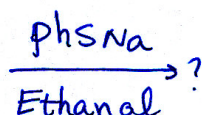 PhSNa
Ethanol
?